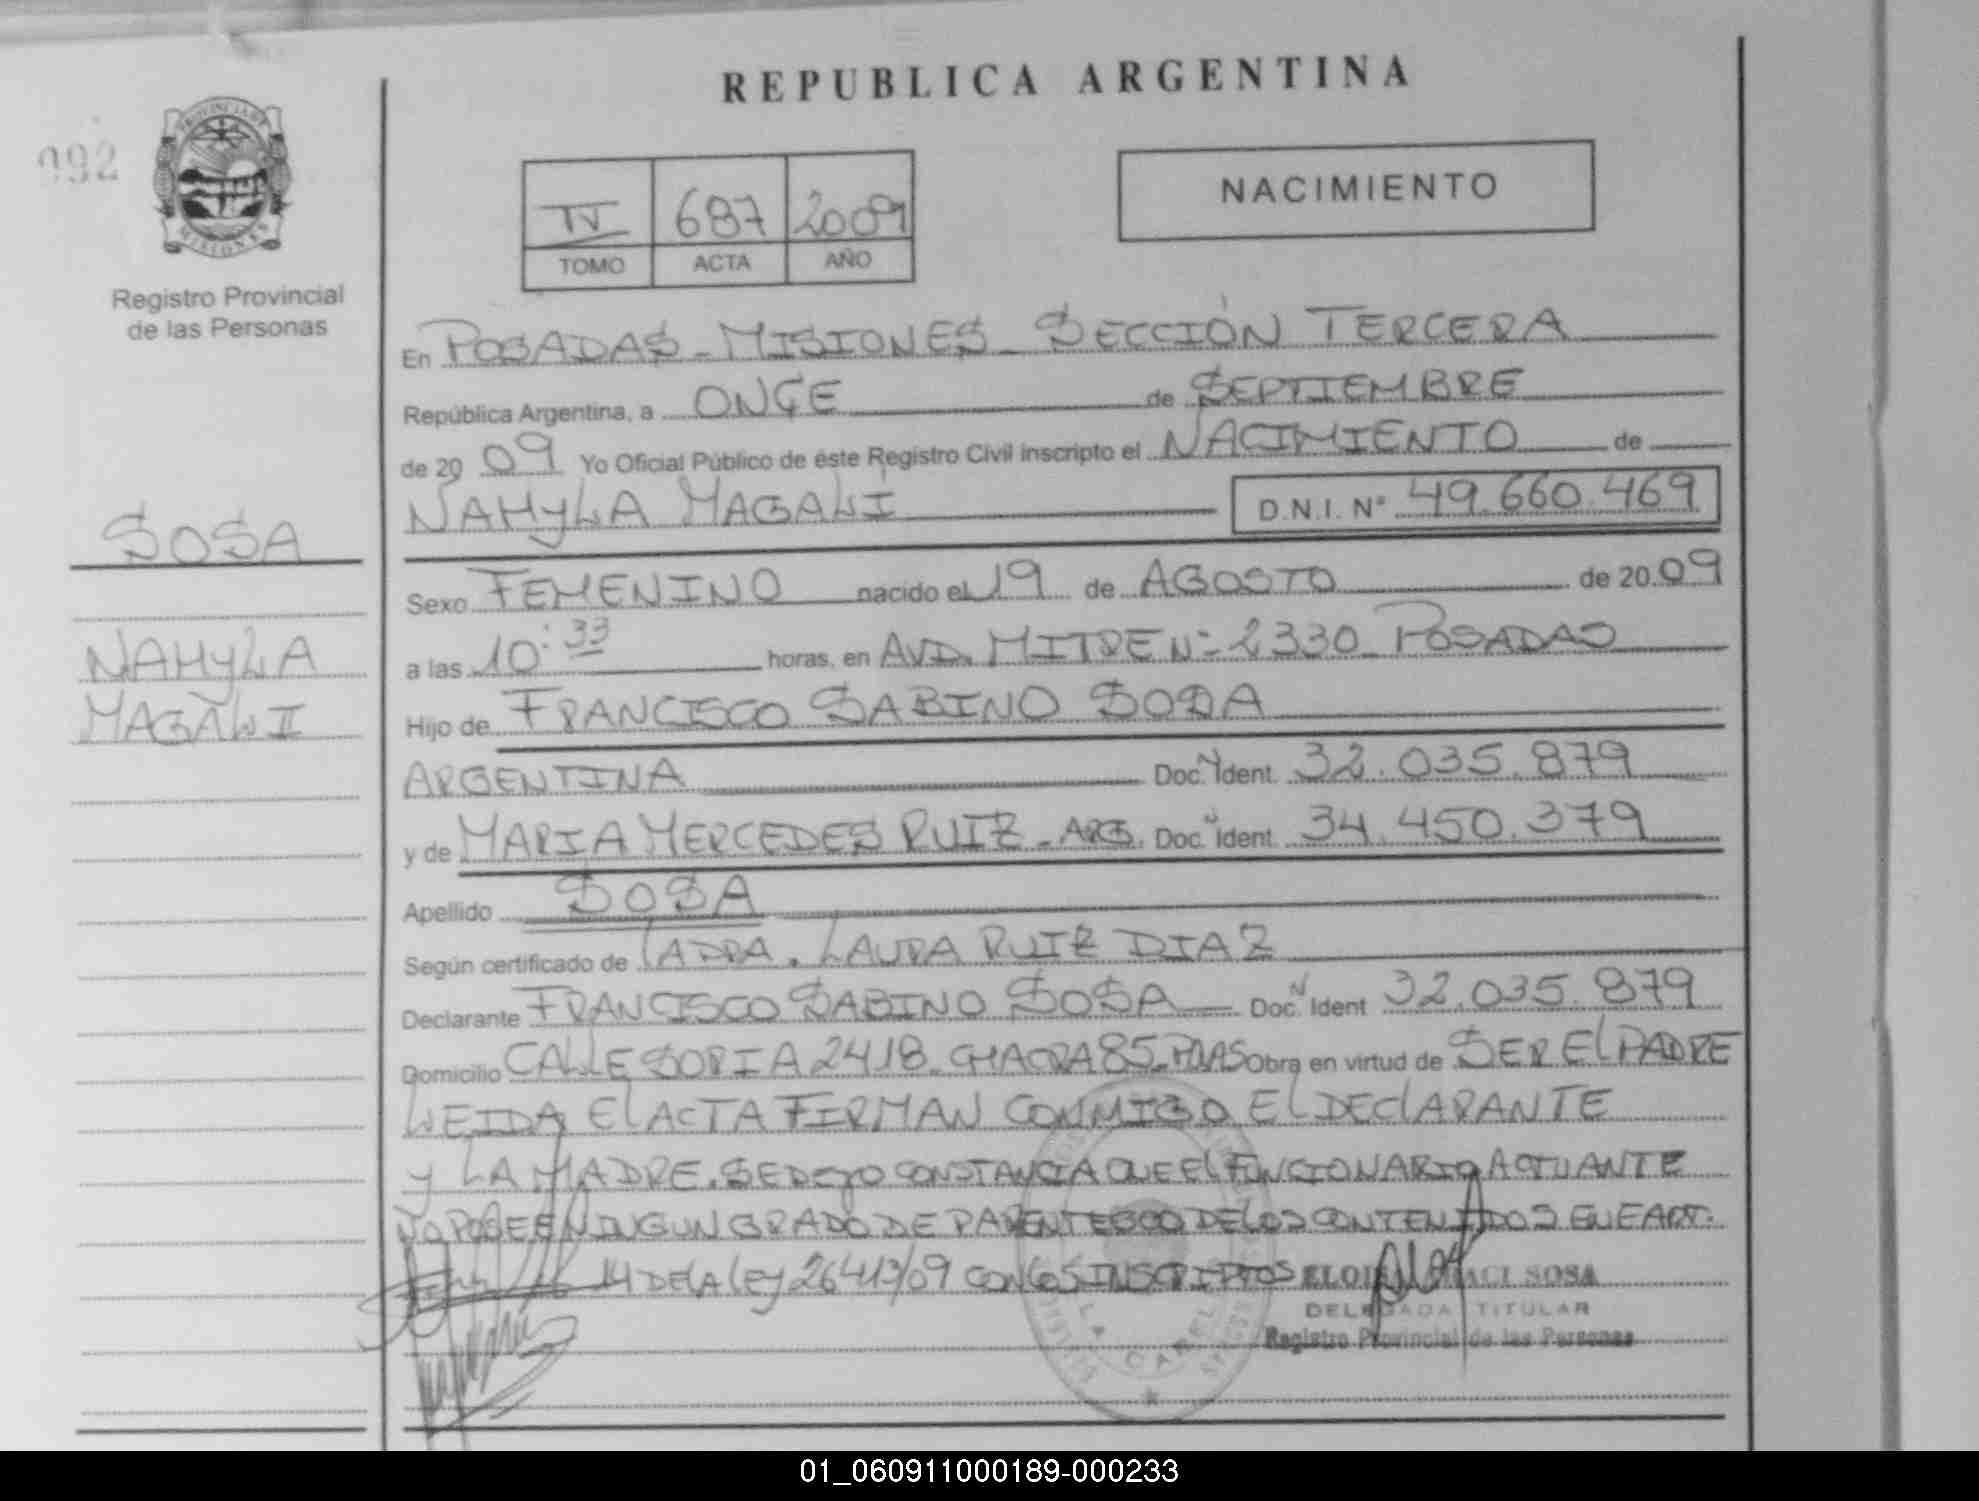 REPUBLICA ARGENTINA
092
PROVINCIA DE
MISIONES
NACIMIENTO
IV 687 2009
TOMO ACTA AÑO
Registro Provincial
de las Personas
En POSADAS - MISIONES - SECCIÓN TERCERA
República Argentina, a ONCE de SEPTIEMBRE
de 20 09 Yo Oficial Público de este Registro Civil inscripto el NACIMIENTO de
NAHYLA MAGALI D.N.I. Nº 49.660.469
SOSA
Sexo FEMENINO nacido el 19 de AGOSTO de 20 09
NAHYLA
MAGALI
a las 10:33 horas, en AVD. MITRE Nº 2330 POSADAS
Hijo de FRANCISCO SABINO SOSA
ARGENTINA Doc. N Ident. 32.035.879
y de MARIA MERCEDES RUIZ - ARG. Doc. N Ident. 34.450.379
Apellido SOSA
Según certificado de LA DRA. LAURA RUIZ DIAZ
Declarante FRANCISCO SABINO SOSA Doc. N Ident 32.035.879
Domicilio CALLE SORIA 2418 - CHACRA 85 - PDAS Obra en virtud de SER El PADRE
LEIDA El ACTA FIRMAN CONMIGO El DEClARANTE
y LA MADRE. SE DEJO CONSTANCIA QUE El FUNCIONARIO ACTUANTE
NO POSEE NINGUN GRADO DE PARENTESCO DE LOS CONTENIDOS EN E ART.
14 DE LA LEy 26413/09 CON LOS INSCRIPTOS
SOSA
DELEGADA TITULAR
Registro Provincial de las Personas
01_060911000189-000233